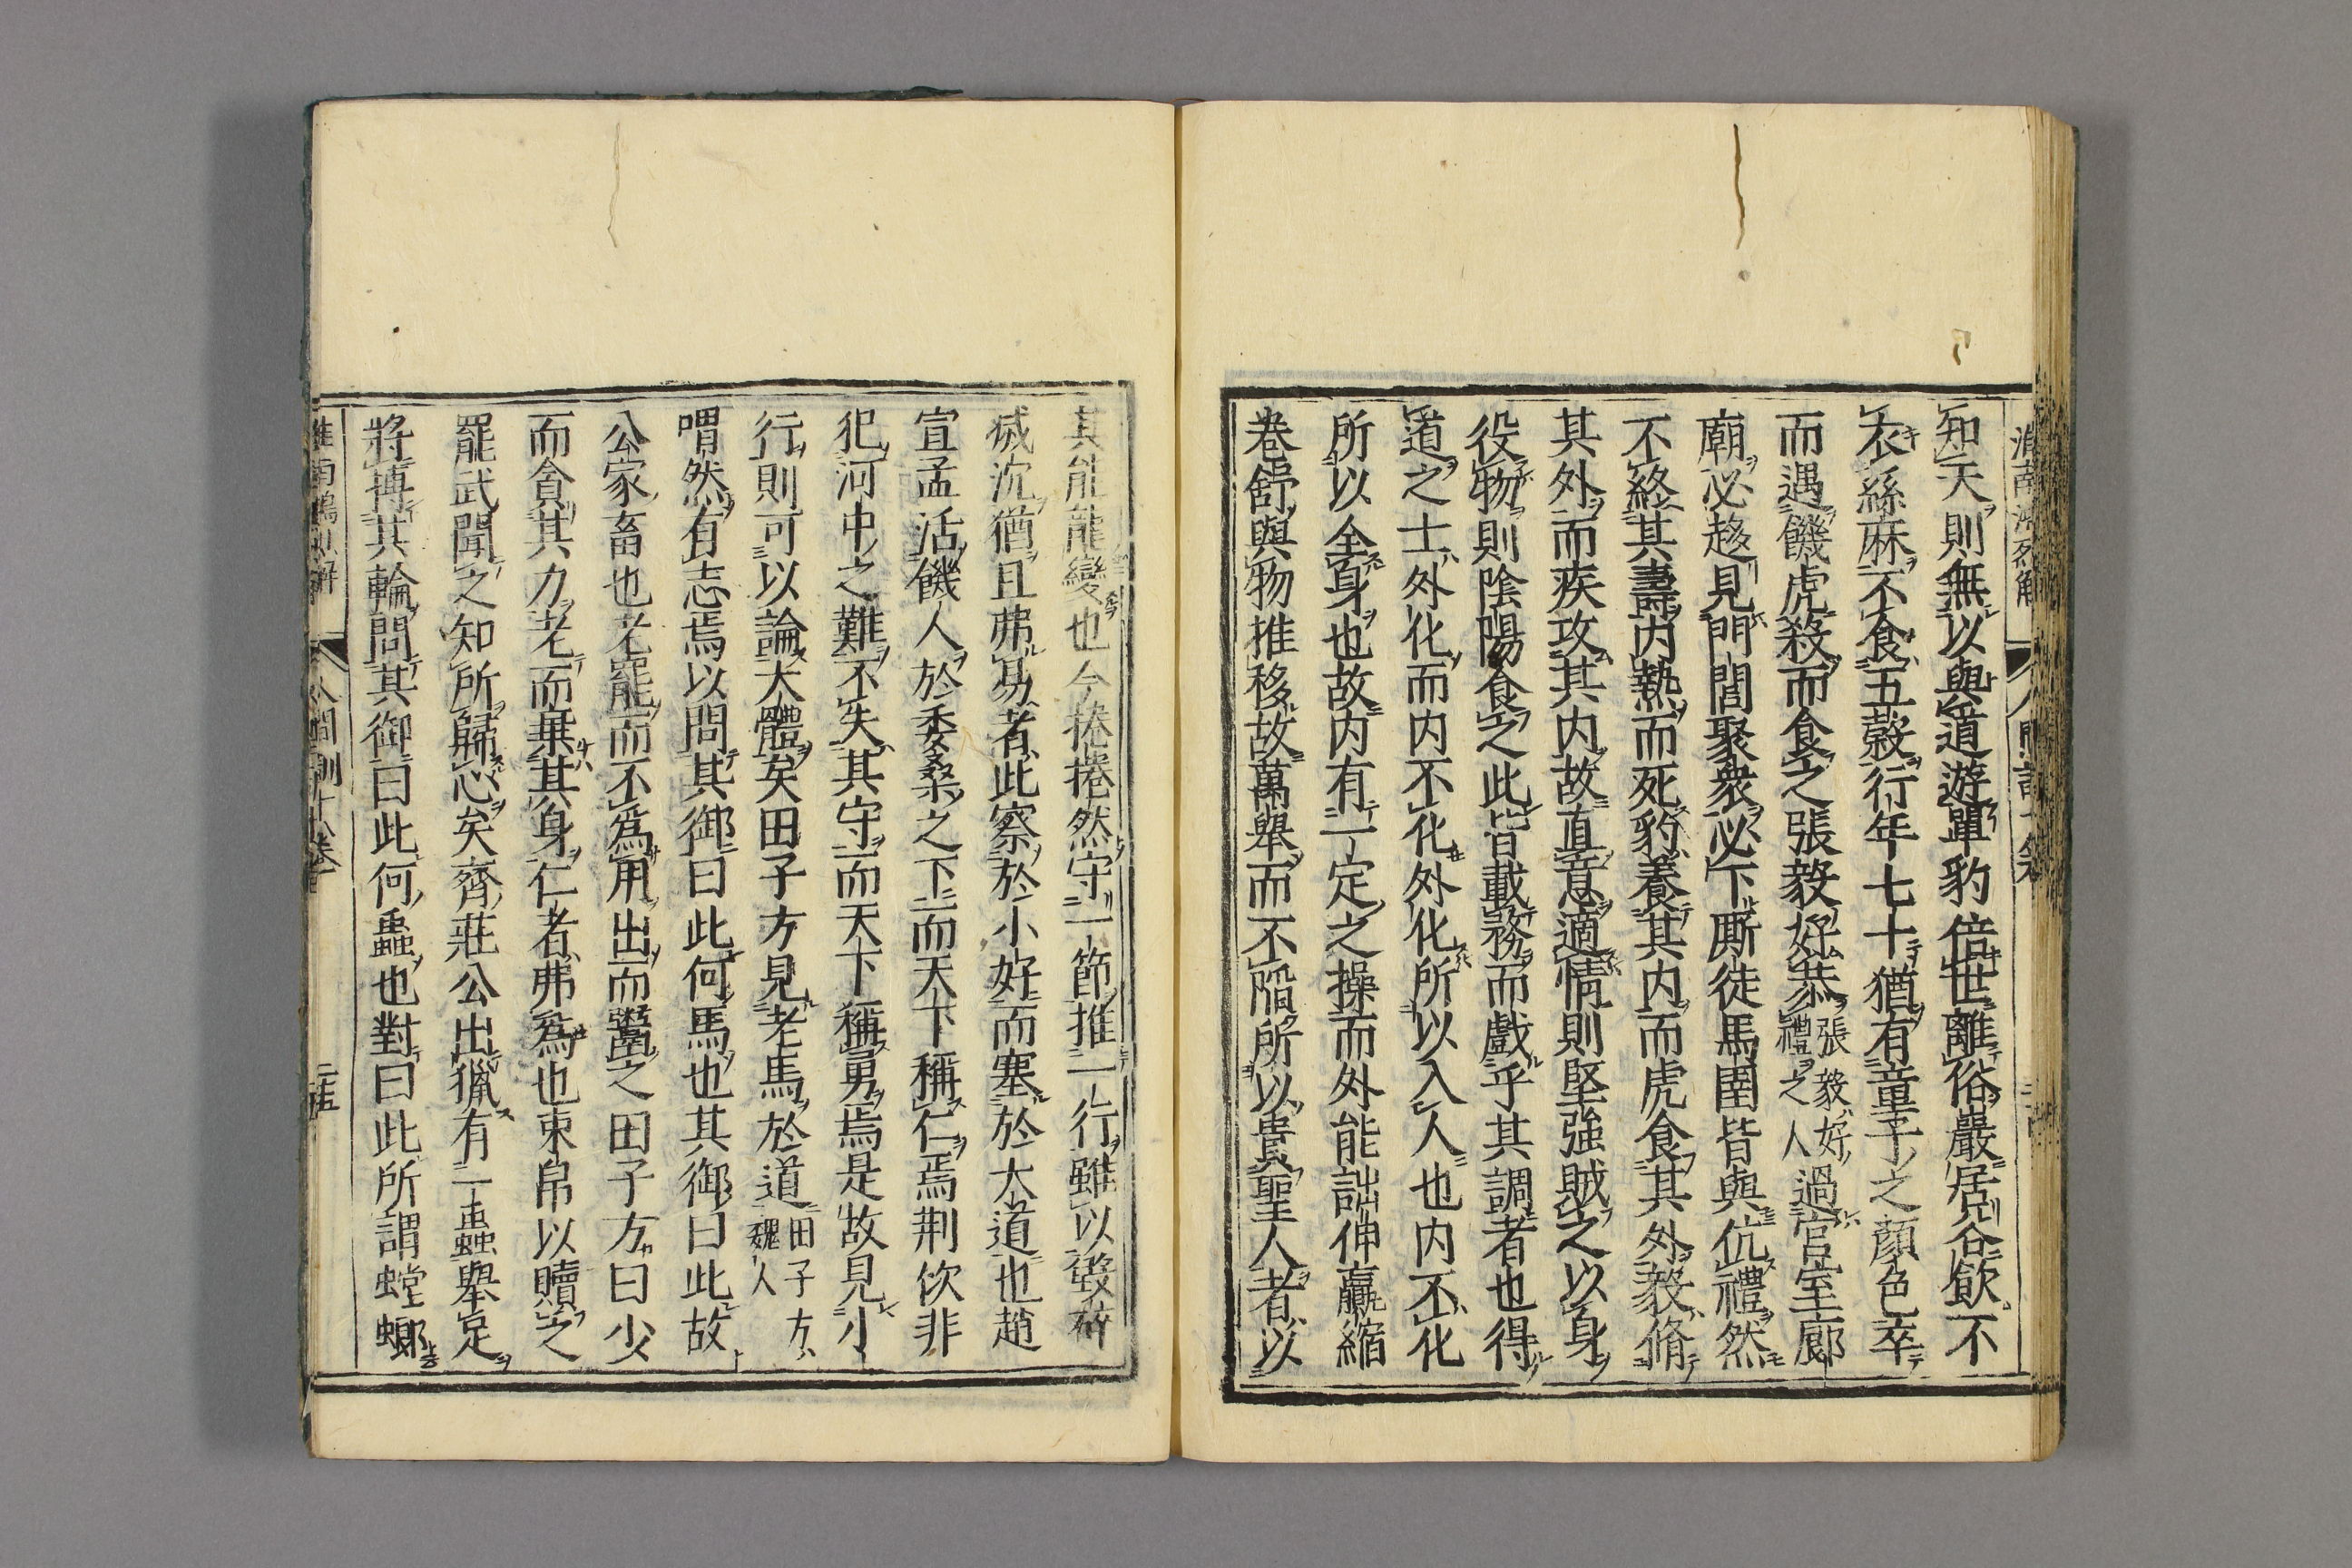 知天則無以與道遊單豹倍世離俗巖居谷飲不
衣絲麻不食五穀行年七十猶有童子之顏色卒
而遇饑虎殺而食之張毅好恭張毅好禮之人過宮室廊
廟必趍見門閭聚衆必下厮徒馬圉皆與伉禮然
不終其壽内熱而死豹養其内而虎食其外毅脩
其外而疾攻其内故直意適情則堅強賊之以身
役物則陰陽食之此皆載務而戲乎其調者也得
道之士外化而内不化外化所以入人也内不化
所以全身也故内有一定之操而外能詘伸贏縮
卷舒與物推移故萬舉而不陷所以貴聖人者以
其能龍變也今捲捲然守一節推一行雖以毀碎
滅沈猶且弗易者此察於小好而塞於大道也趙
宣孟活饑人於委桑之下而天下稱仁焉荆佽非
犯河中之難不失其守而天下稱勇焉是故見小
行則可以論大體矣田子方見老馬於道田子方魏人
喟然有志焉以問其御曰此何馬也其御曰此故
公家畜也老罷而不爲用出而鬻之田子方曰少
而貪其力老而棄其身仁者弗爲也束帛以贖之
罷武聞之知所歸心矣齊莊公出獵有一蟲舉足
將搏其輪問其御曰此何蟲也對曰此所謂螳螂
人間訓十八卷
二十五